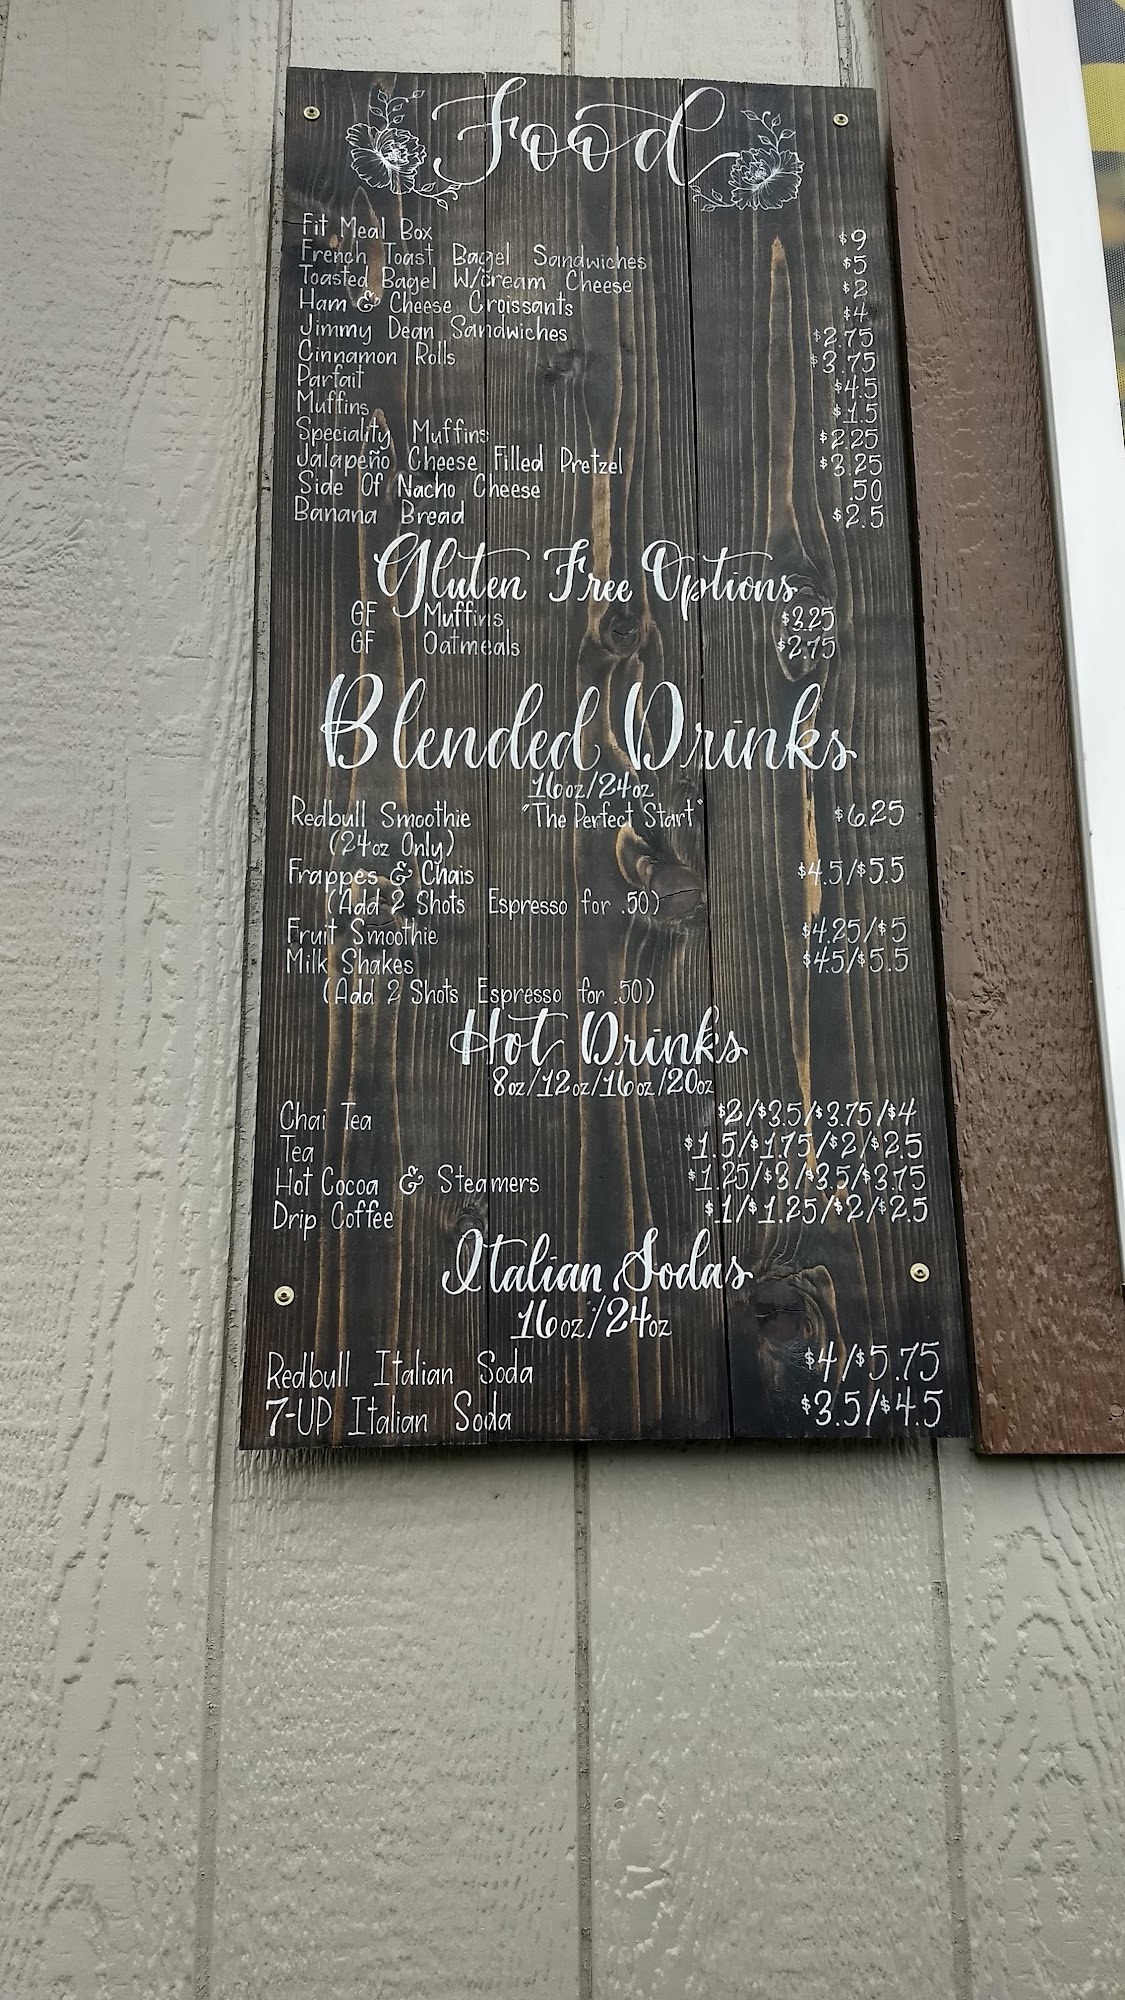 Food
Fit Meal Box $9
French Toast Bagel Sandwiches $5
Toasted Bagel W/Cream Cheese $2
Ham & Cheese Croissants $4
Jimmy Dean Sandwiches $2.75
Cinnamon Rolls $3.75
Parfait $4.5
Muffins $1.5
Speciality Muffins $2.25
Jalapeño Cheese Filled Pretzel $3.25
Side Of Nacho Cheese .50
Banana Bread $2.5
Gluten Free Options
GF Muffins $3.25
GF Oatmeals $2.75
Blended Drinks
16oz/24oz
Redbull Smoothie "The Perfect Start" $6.25
(24oz Only)
Frappes & Chais $4.5/$5.5
(Add 2 Shots Espresso for .50)
Fruit Smoothie $4.25/$5
Milk Shakes $4.5/$5.5
(Add 2 Shots Espresso for .50)
Hot Drinks
8oz/12oz/16oz/20oz
Chai Tea $2/$3.5/$3.75/$4
Tea $1.5/$1.75/$2/$2.5
Hot Cocoa & Steamers $1.25/$3/$3.5/$3.75
Drip Coffee $1/$1.25/$2/$2.5
Italian Sodas
16oz/24oz
Redbull Italian Soda $4/$5.75
7-UP Italian Soda $3.5/$4.5